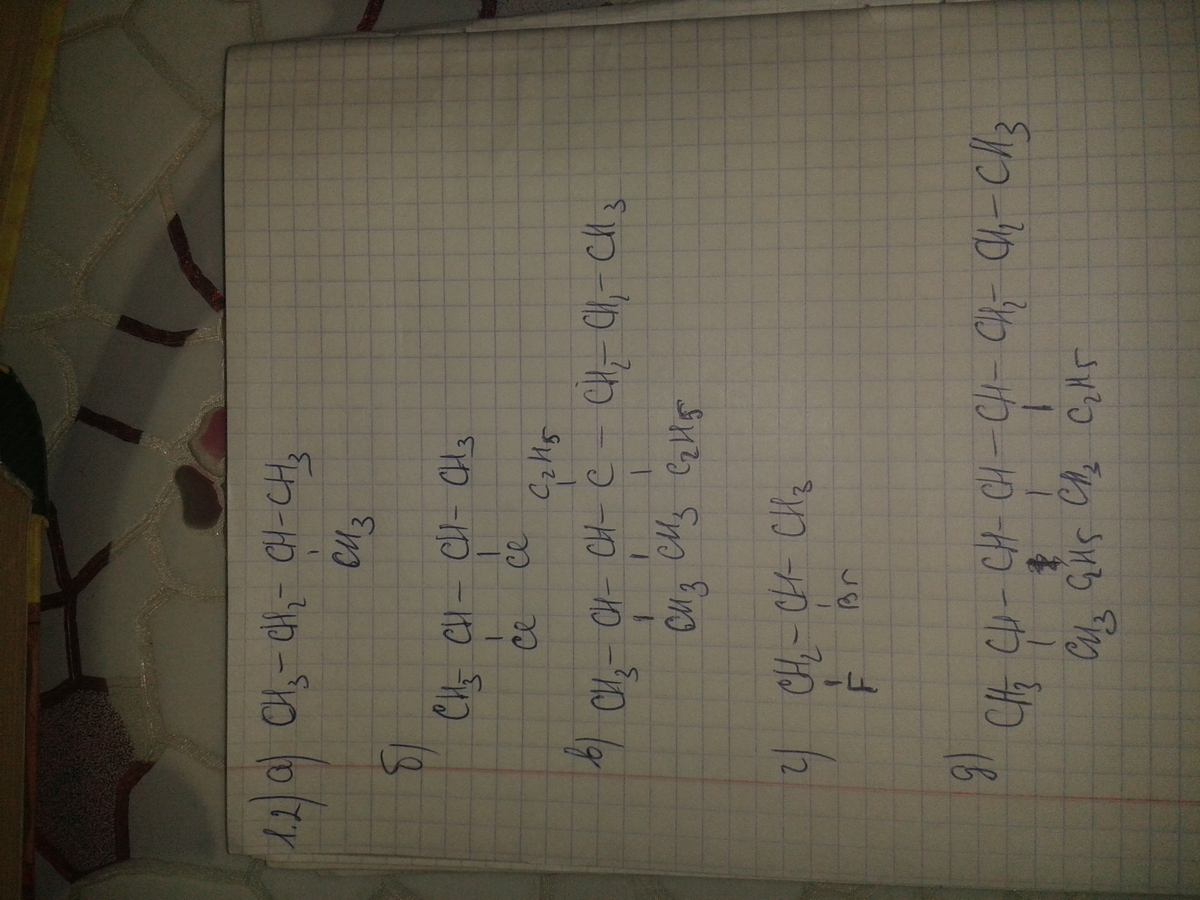 1.2) а) CH3 – CH2 – CH – CH3
CH3
б)
CH3 – CH – CH – CH3
Cl Cl
C2H5
в) CH3 – CH – CH – C – CH2 – CH2 – CH3
CH3 CH3 C2H5
г) CH2 – CH – CH3
F Br
д) CH3 – CH – CH – CH – CH – CH2 – CH2 – CH3
CH3 C2H5 CH3 C2H5